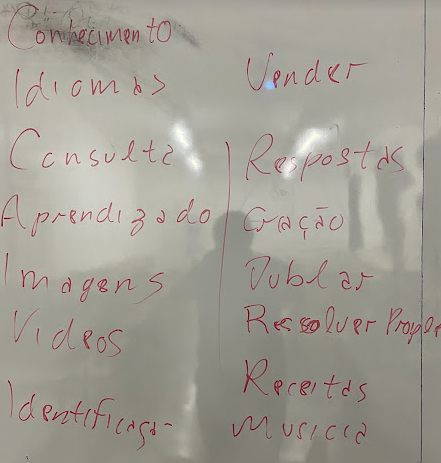 Conhecimento
Idiomas
Consulta
Aprendizado
Imagens
Videos
Identificaçao
Vender
Respostas
Cração
Dublar
Ressolver Prople
Receitas
Musicia